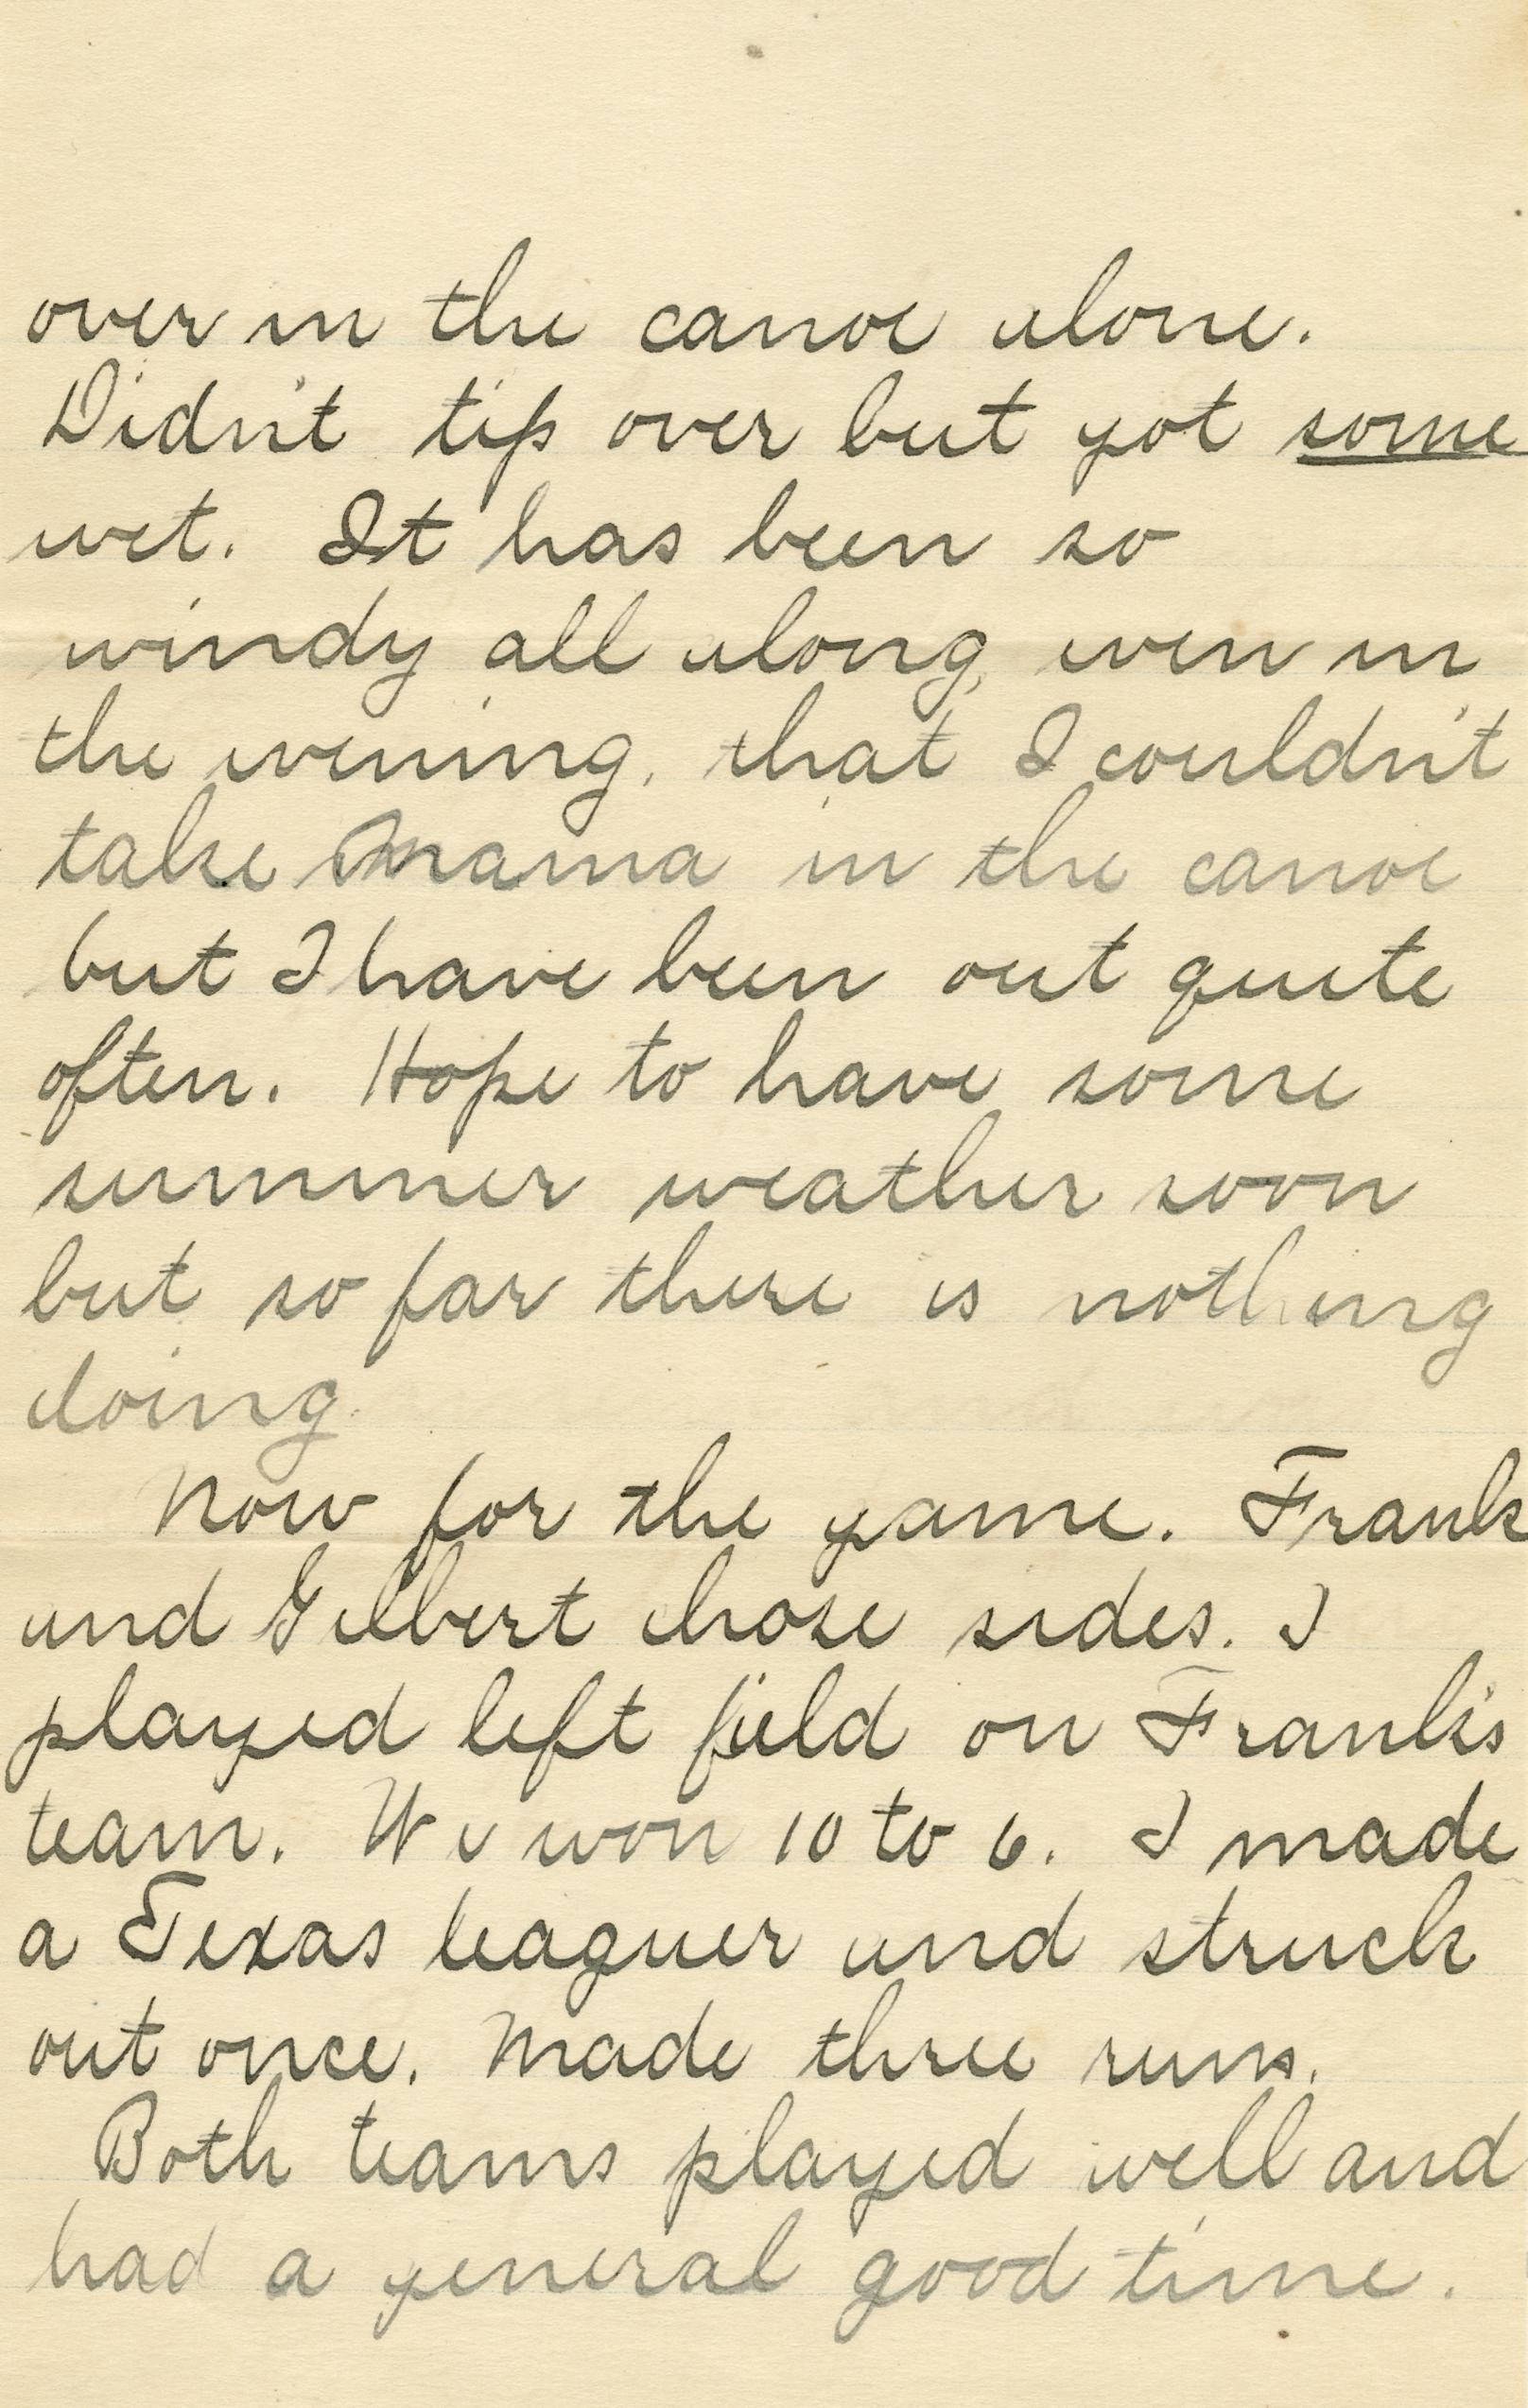 over in the canoe alone.
Didn't tip over but got some
wet. It has been so
windy all along, even in
the evening, that I couldn't
take Mama in the canoe
but I have been out quite
often. Hope to have some
summer weather soon
but so far there is nothing
doing.
Now for the game. Frank
and Gilbert chose sides. I
played left field on Frank's
team. We won 10 to 6. I made
a Texas leaguer and struck
out once. Made three runs.
Both teams played well and
had a general good time.